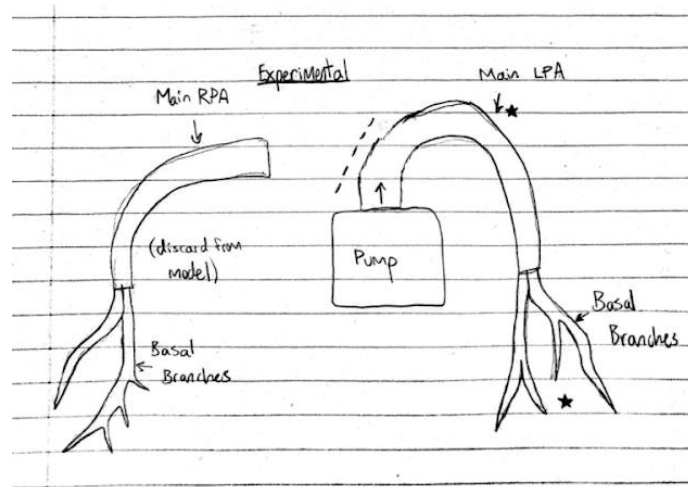 Experimental
Main RPA
Main LPA
(discard from
model)
Pump
Basal
Branches
Basal
Branches